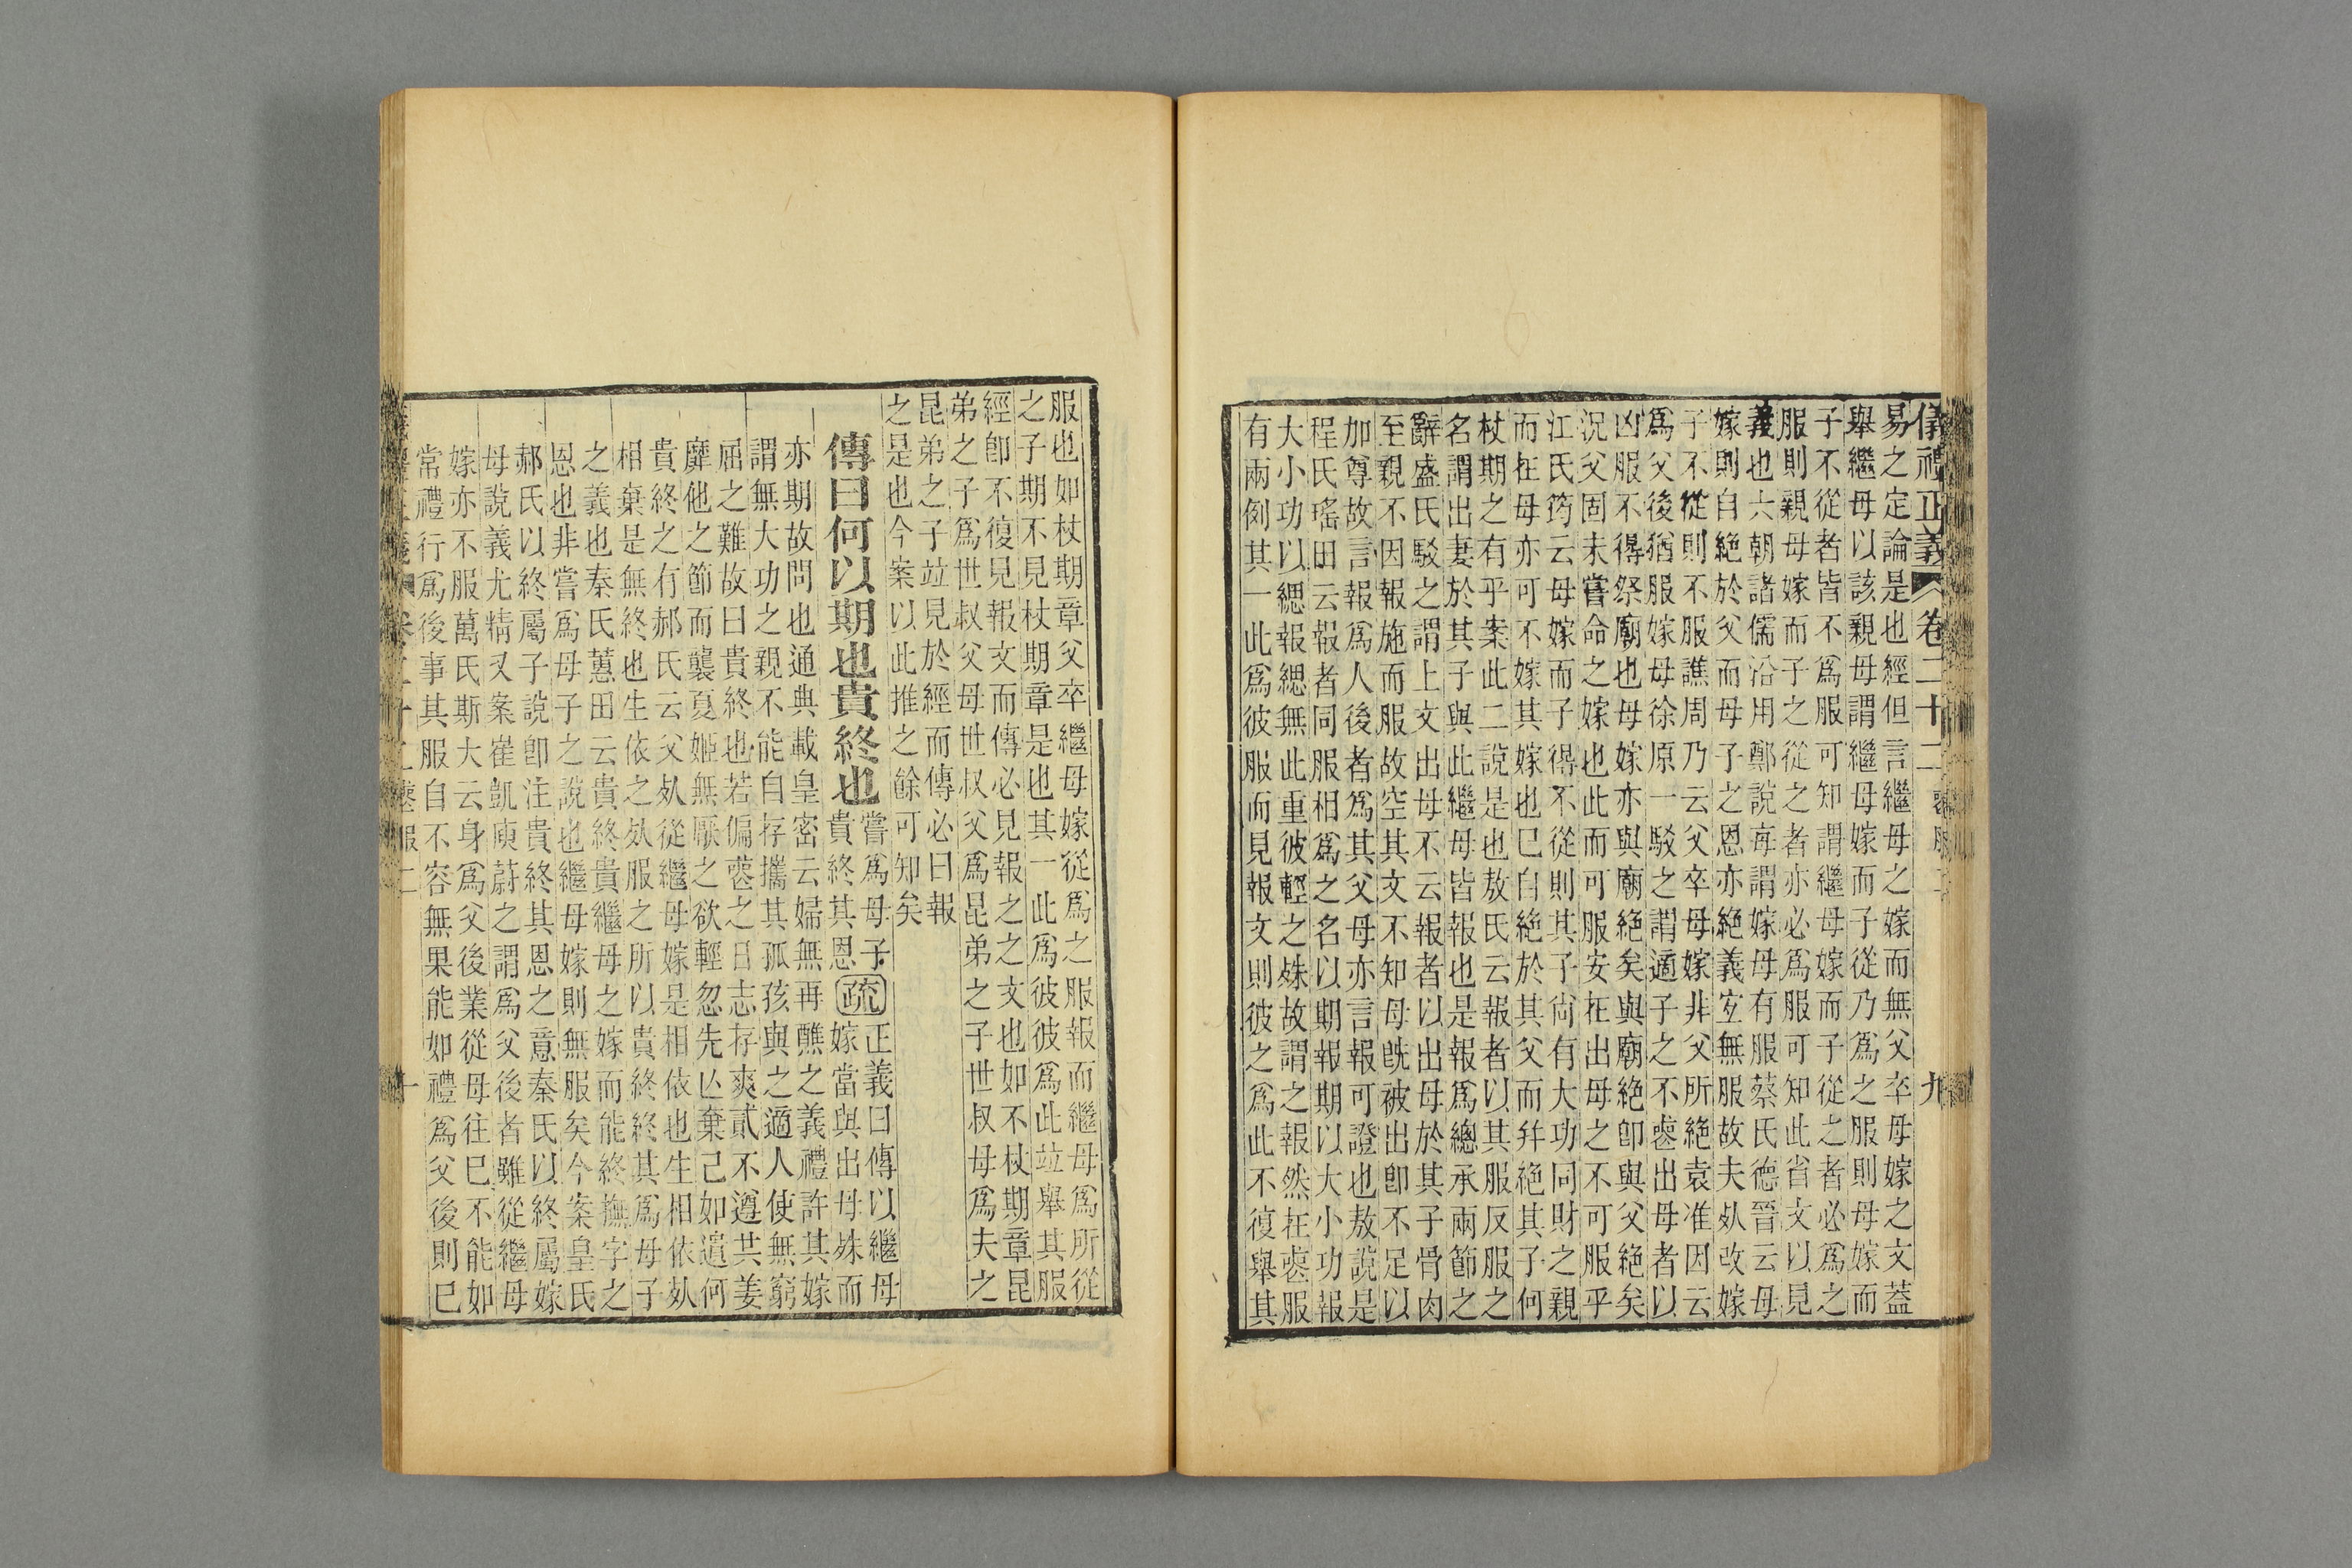 儀禮正義 卷二十二 喪服二 九
易之定論是也經但言繼母之嫁而無父卒母嫁之文葢
舉繼母以該親母謂繼母嫁而子從乃爲之服則母嫁而
子不從者皆不爲服可知謂繼母嫁而子從之者必爲之
服則親母嫁而子之從之者亦必爲服可知此省文以見
義也六朝諸儒沿用鄭說每謂嫁母有服蔡氏德晉云母
嫁則自絶於父而母子之恩亦絶義宐無服故夫𣦸改嫁
子不從則不服譙周乃云父卒母嫁非父所絶袁准因云
爲父後猶服嫁母徐原一駁之謂適子之不喪出母者以
凶服不得祭廟也母嫁亦與廟絶矣與廟絶卽與父絶矣
況父固未嘗命之嫁也此而可服安在出母之不可服乎
江氏筠云母嫁而子得不從則其子尙有大功同財之親
而在母亦可不嫁其嫁也已自絶於其父而幷絶其子何
杖期之有乎案此二說是也敖氏云報者以其服反服之
名謂出妻於其子與此繼母皆報也是報爲總承兩節之
辭盛氏駁之謂上文出母不云報者以出母於其子骨肉
至親不因報施而服故空其文不知母旣被出卽不足以
加尊故言報爲人後者爲其父母亦言報可證也敖說是
程氏瑤田云報者同服相爲之名以期報期以大小功報
大小功以緦報緦無此重彼輕之殊故謂之報然在喪服
有兩例其一此爲彼服而見報文則彼之爲此不復舉其
服也如杖期章父卒繼母嫁從爲之服報而繼母爲所從
之子期不見杖期章是也其一此爲彼彼爲此竝舉其服
經卽不復見報文而傳必見報之之文也如不杖期章昆
弟之子爲世叔父母世叔父爲昆弟之子世叔母爲夫之
昆弟之子竝見於經而傳必曰報
之是也今案以此推之餘可知矣
傳曰何以期也貴終也
嘗爲母子貴終其恩
疏正義曰傳以繼母嫁當與出母殊而
亦期故問也通典載皇密云婦無再醮之義禮許其嫁
謂無大功之親不能自存攜其孤孩與之適人使無窮
屈之難故曰貴終也若偏喪之日志存爽貳不遵共姜
靡他之節而襲夏姬無厭之欲輕忽先亾棄己如遺何
貴終之有郝氏云父𣦸從繼母嫁是相依也生相依𣦸
相棄是無終也生依之𣦸服之所以貴終終其爲母子
之義也秦氏蕙田云貴終貴繼母之嫁而能終撫字之
恩也非嘗爲母子之說也繼母嫁則無服矣今案皇氏
郝氏以終屬子說卽注貴終其恩之意秦氏以終屬嫁
母說義尤精又案崔凱庾蔚之謂爲父後者雖從繼母
嫁亦不服萬氏斯大云身爲父後業從母往已不能如
常禮行爲後事其服自不容無果能如禮爲父後則已